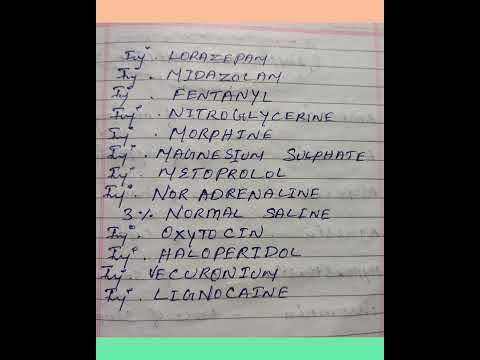 Inj. LORAZEPAM
Inj. MIDAZOLAM
Inj. FENTANYL
Inj. NITROGLYCERINE
Inj. MORPHINE
Inj. MAGNESIUM SULPHATE
Inj. METOPROLOL
Inj. NOR ADRENALINE
3% NORMAL SALINE
Inj. OXYTOCIN
Inj. HALOPERIDOL
Inj. VECURONIUM
Inj. LIGNOCAINE